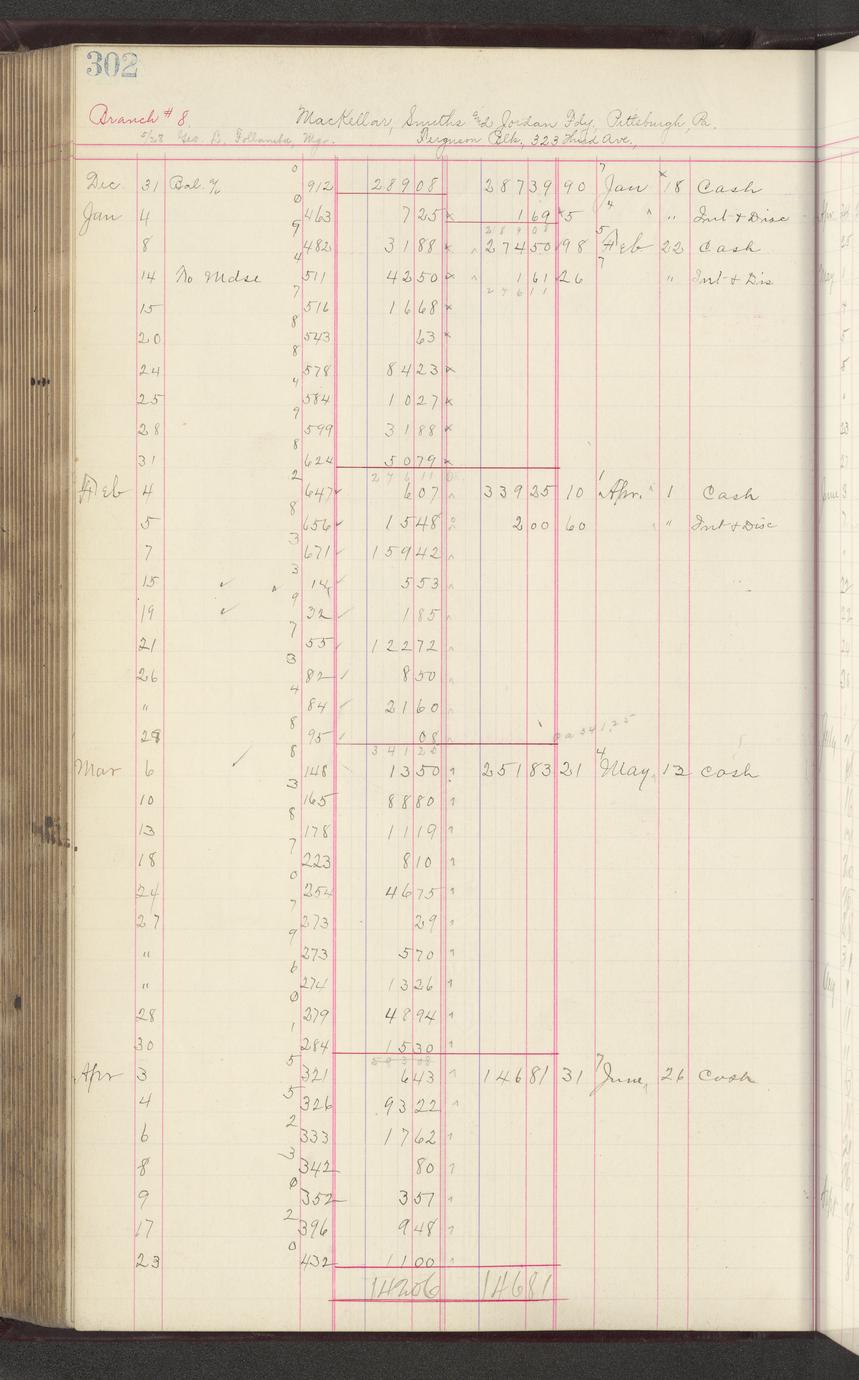 302
Branch # 8. MacKellar, Smiths & Jordan Fdy, Pittsburgh, Pa.
5/28 Geo. L. Follansbee, Mgr. Ferguson Blk, 323 Third Ave.,
0
Dec. 31 Bal. % 912 28908 28739 90 Jan 18 Cash
Jan 4 463 725 169 5 " Int & Disc
28908
8 482 3188 27450 98 Feb 22 Cash
14 To Mdse 511 4250 161 26 " Int & Dis
27611
15 516 1668
20 543 63
24 578 8423
25 584 1027
28 599 3188
31 624 5079
27611
Feb 4 647 607 33925 10 Apr. 1 Cash
5 656 1548 200 60 " Int & Disc
7 671 15942
15 14 553
19 32 185
21 55 12272
26 82 850
" 84 2160
28 95 08
34125
Mar 6 148 1350 25183 21 May 13 Cash
10 165 8880
13 178 1119
18 223 810
24 254 4675
27 273 29
" 273 570
" 274 1326
28 279 4894
30 284 1530
Apr 3 321 643 14681 31 June, 26 Cash
4 326 9322
6 333 1762
8 342 80
9 352 351
17 396 948
23 432 1100
14206 14681